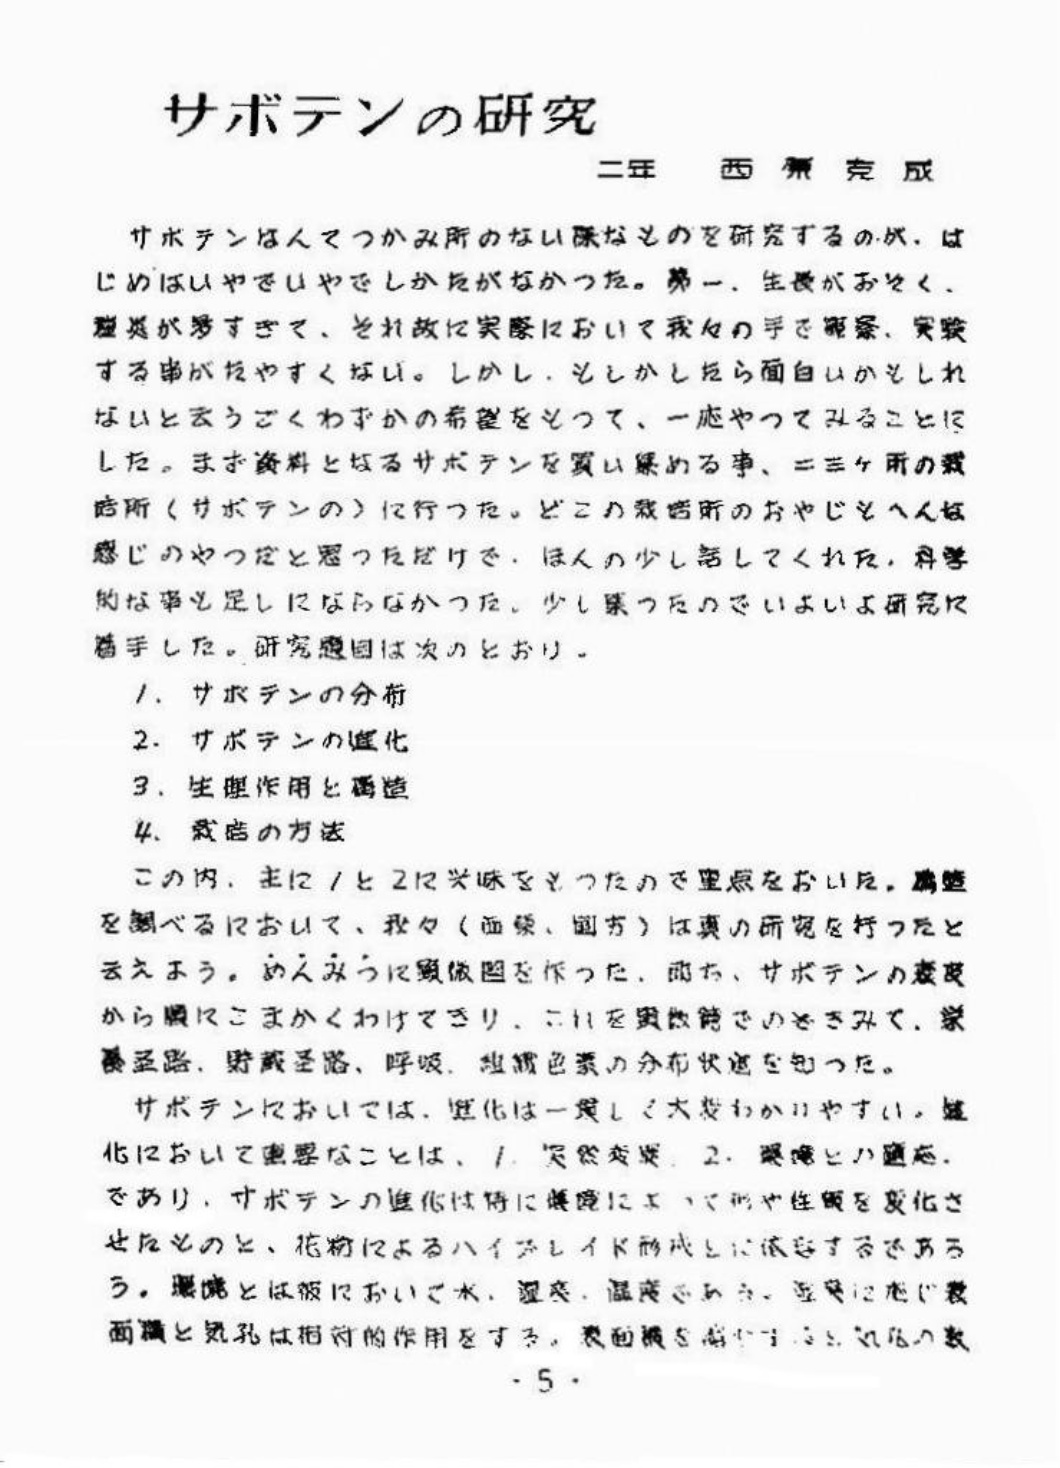 サボテンの研究
二年 西原克成
サボテンなんてつかみ所のない様なものを研究するのが、は
じめはいやでいやでしかたがなかつた。第一、生長がおそく、
種類が多すぎて、それ故に実際において我々の手で観察、実験
する事がたやすくない。しかし、もしかしたら面白いかもしれ
ないと云うごくわずかの希望をもつて、一応やつてみることに
した。まず資料となるサボテンを買い集める事、二三ヶ所の栽
培所(サボテンの)に行つた。どこの栽培所のおやじもへんな
感じのやつだと思つただけで、ほんの少し話してくれた、科学
的な事も足しにならなかつた。少し集つたのでいよいよ研究に
着手した。研究題目は次のとおり。
1. サボテンの分布
2. サボテンの進化
3. 生理作用と構造
4. 栽培の方法
この内、主に1と2に興味をもつたので重点をおいた。構造
を調べるにおいて、我々(西原、国方)は真の研究を行つたと
云えよう。めんみつに顕微図を作つた、即ち、サボテンの表皮
から順にこまかくわけてきり、これを顕微鏡でのぞきみて、栄
養茎路、貯蔵茎路、呼吸、組織色素の分布状態を知つた。
サボテンにおいては、進化は一貫して大変わかりやすい。進
化において重要なことは、1. 突然変異 2. 環境との適応、
であり、サボテンの進化は特に環境によつて形や性質を変化さ
せたものと、花粉によるハイブレイド形成とに依存するであろ
う。環境とは般において水、湿度、温度であろう。湿度に応じ表
面積と気孔は相対的作用をする。表面積を の数
・5・